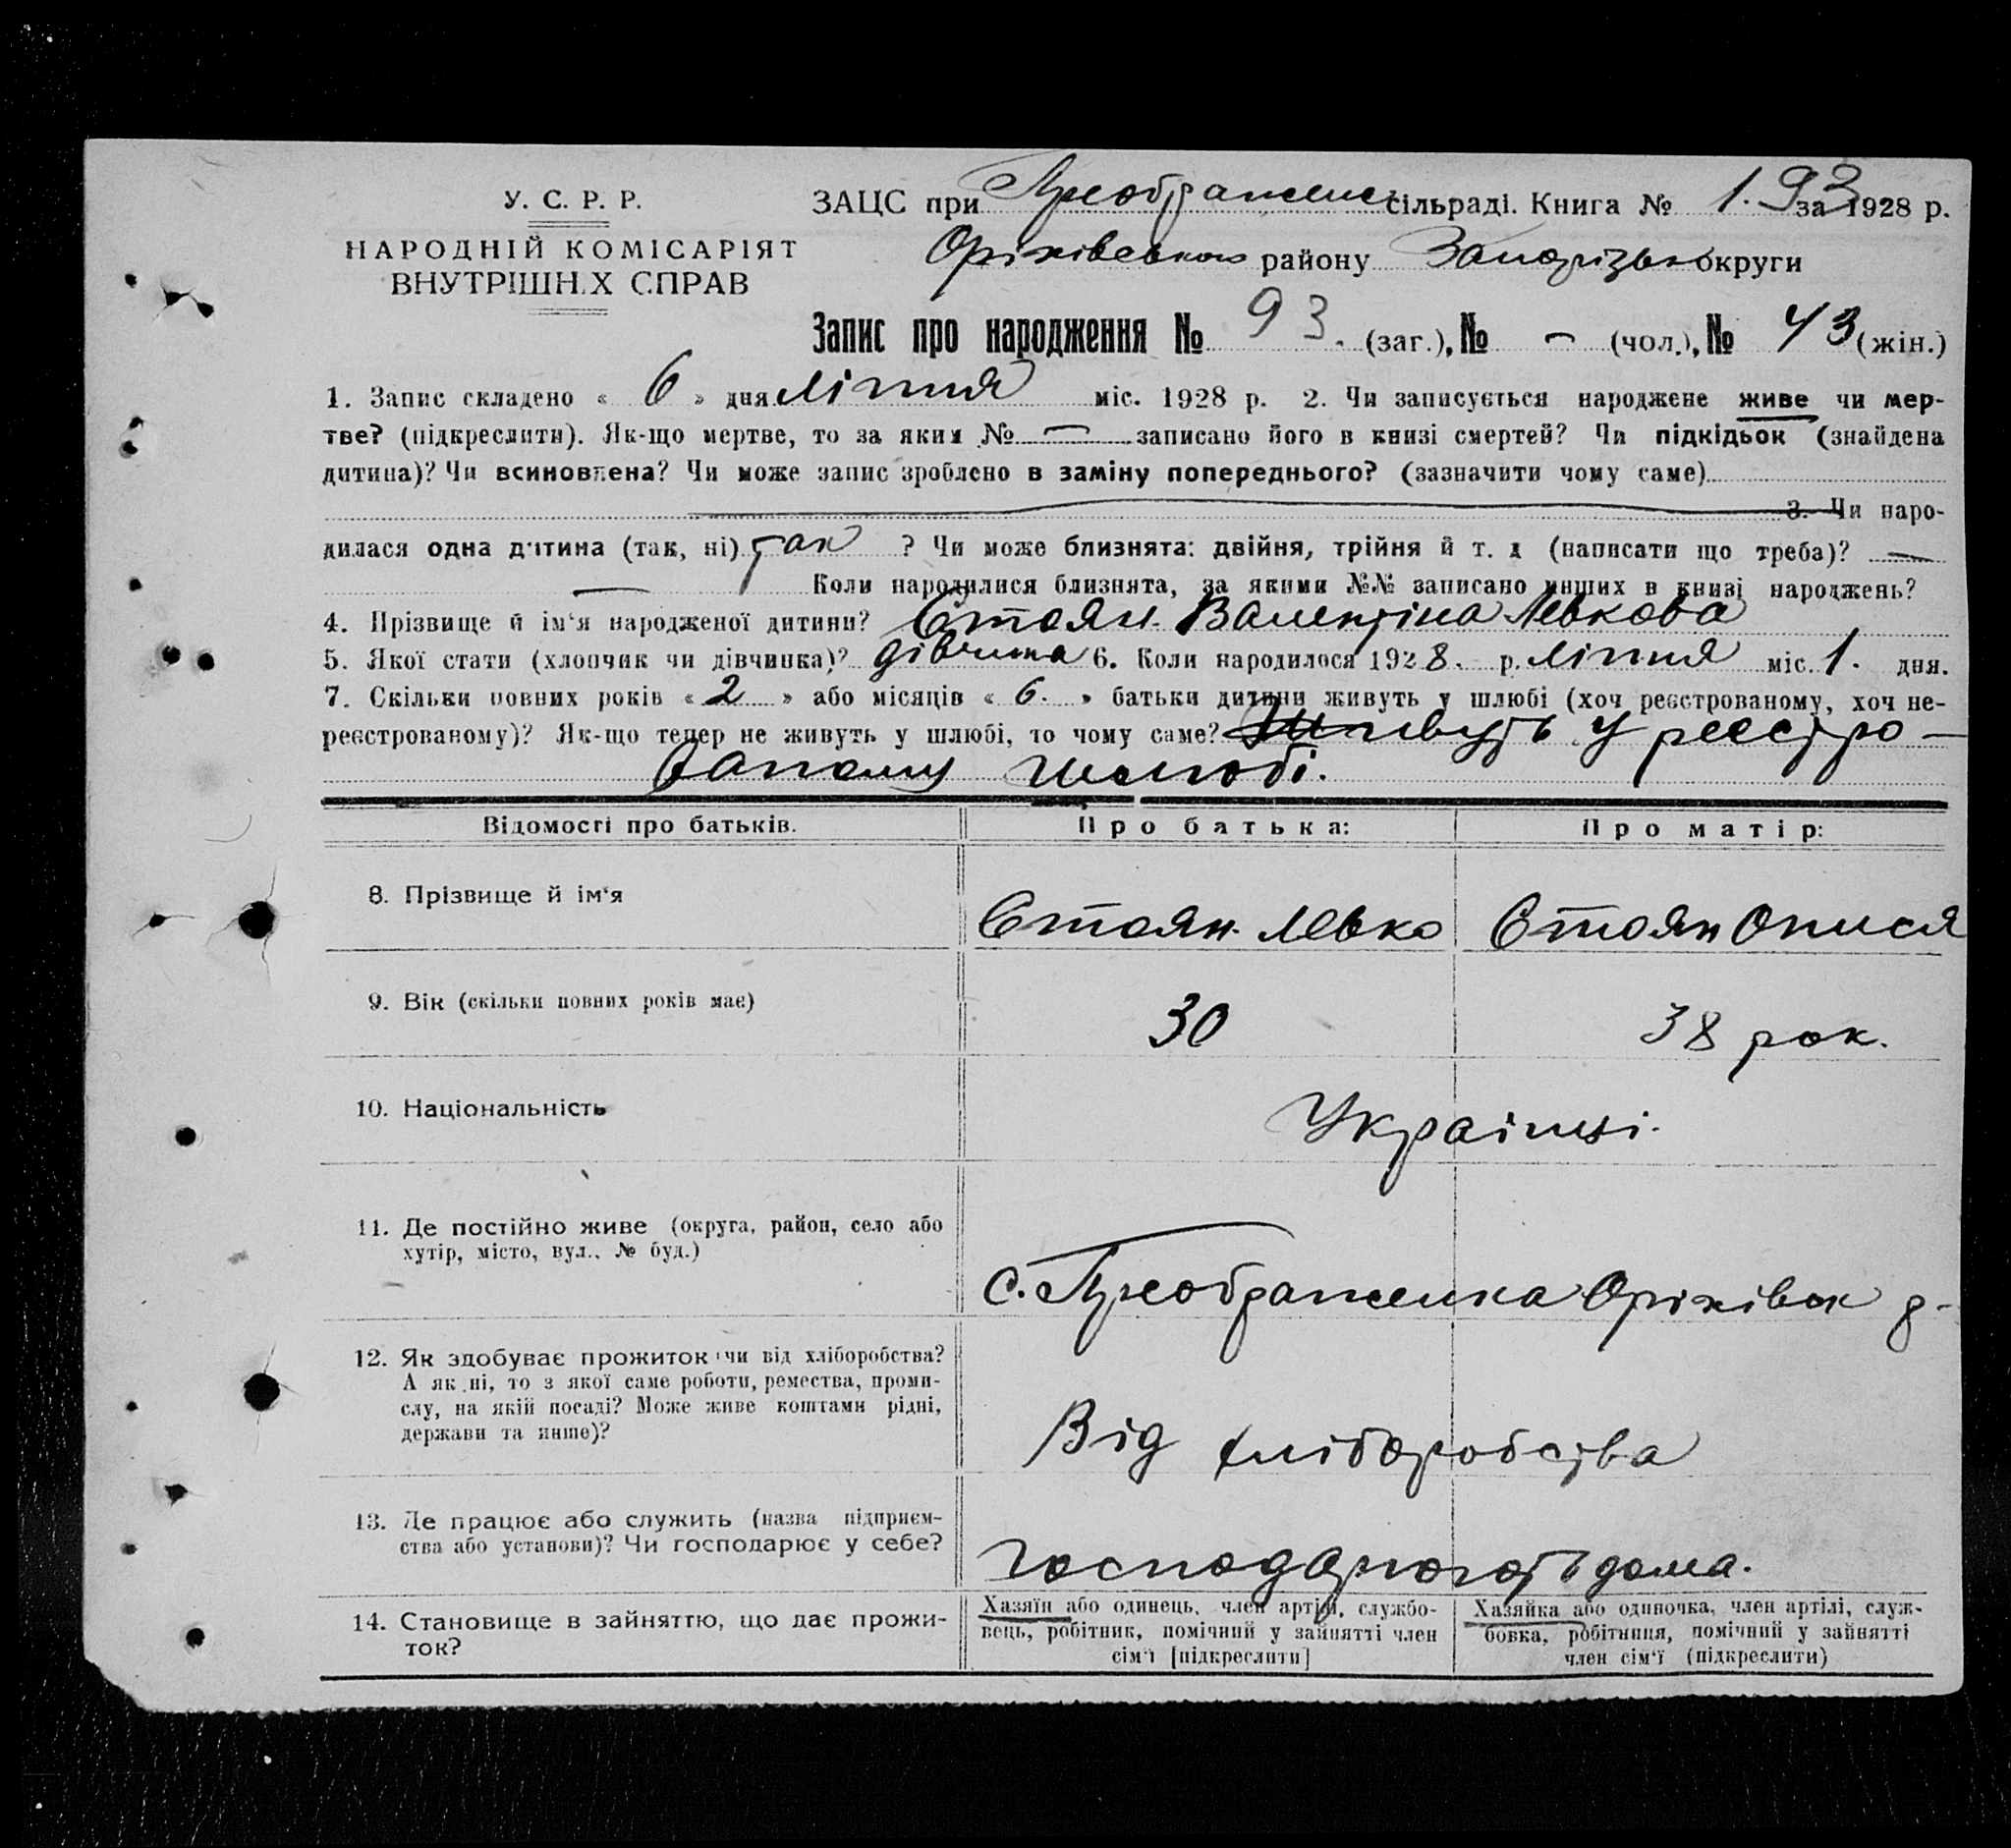 У. С. Р. Р.
НАРОДНІЙ КОМІСАРІЯТ
ВНУТРІШН.Х СПРАВ
ЗАЦС при Преображенс сільраді. Книга № 1. 93 за 1928 р.
Оріхівського району Запорізько округи
Запис про народження № 93. (заг.), № — (чол.), № 43 (жін.)
1. Запис складено « 6 » дня Ліпня міс. 1928 р. 2. Чи записується народжене живе чи мер-
тве? (підкреслити). Як-що мертве, то за яким № — записано його в книзі смертей? Чи підкідьок (знайдена
дитина)? Чи всиновлена? Чи може запис зроблено в заміну попереднього? (зазначити чому саме)
3. Чи наро-
дилася одна дитина (так, ні) так ? Чи може близнята: двійня, трійня й т. д (написати що треба)? —
— Коли народилися близнята, за якими №№ записано инших в книзі народжень?
4. Прізвище й ім'я народженої дитини? Стоян. Валентіна Левкова
5. Якої стати (хлопчик чи дівчинка)? дівчина 6. Коли народилося 1928. р. Ліпня міс. 1. дня.
7. Скільки повних років « 2 » або місяців « 6. » батьки дитини живуть у шлюбі (хоч реєстрованому, хоч не-
реєстрованому)? Як-що тепер не живуть у шлюбі, то чому саме? Живуть у реєстро-
ваному шлюбі.
Відомості про батьків. Про батька: Про матір:
8. Прізвище й ім'я Стоян. Левко Стоян Опися
9. Вік (скільки повних років має) 30 38 рок.
10. Національність Українці.
11. Де постійно живе (округа, район, село або
хутір, місто, вул., № буд.)
с. Преображенка Оріхівськ р-
12. Як здобуває прожиток чи від хліборобства?
А як ні, то з якої саме роботи, ремества, проми-
слу, на якій посаді? Може живе коштами рідні,
держави та инше)?
Від хліборобства
13. Де працює або служить (назва підприєм-
ства або установи)? Чи господарює у себе?
Господарюють дома.
14. Становище в зайняттю, що дає прожи-
ток?
Хазяїн або одинець, член артілі, службо-
вець, робітник, помічний у зайнятті член
сім'ї [підкреслити]
Хазяйка або одиночка, член артілі, служ-
бовка, робітниця, помічний у зайнятті
член сім'ї (підкреслити)